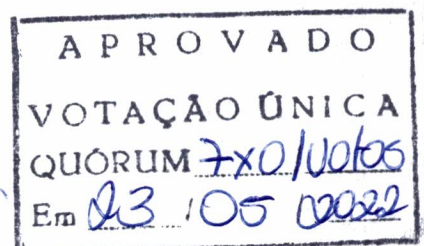 APROVADO
VOTAÇÃO ÚNICA
QUÓRUM 7x0 votos
Em 23 / 05 / 2022